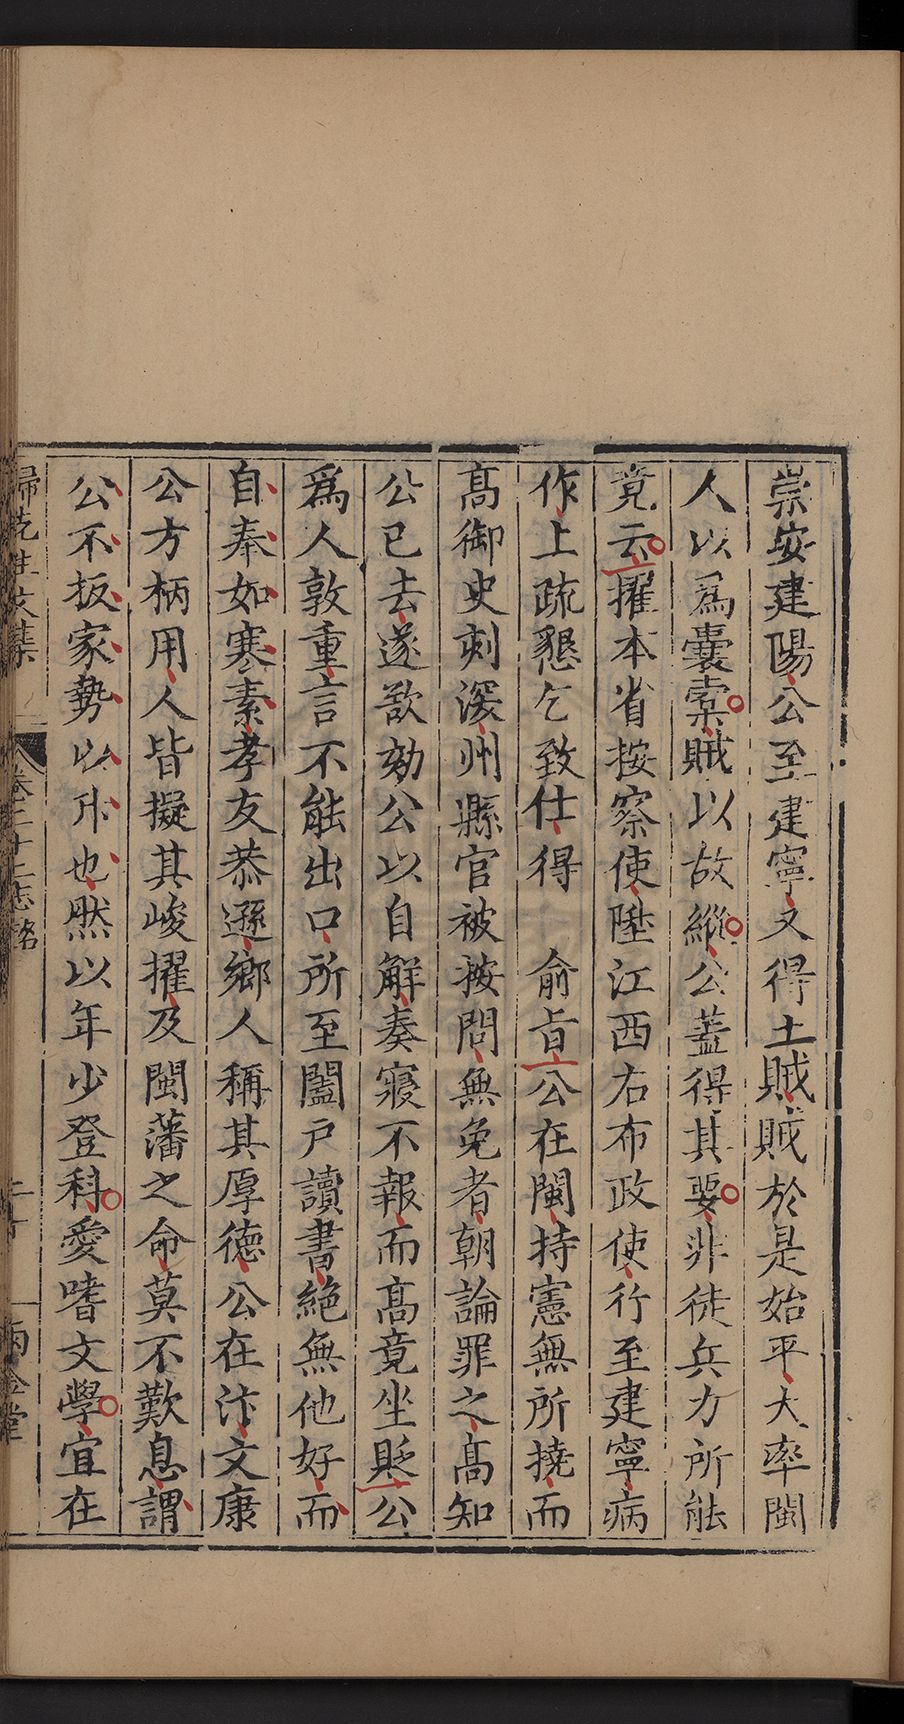 崇安建陽公至建寧又得土賊賊於是始平大率閩
人以爲囊橐賊以故縱公蓋得其要非徒兵力所能
竟云擢本省按察使陞江西右布政使行至建寧病
作上疏懇乞致仕得　俞旨公在閩持憲無所撓而
高御史刺深州縣官被按問無免者朝論罪之高知
公已去遂欲劾公以自解奏寢不報而高竟坐貶公
爲人敦重言不能出口所至闔戶讀書絕無他好而
自奉如寒素孝友恭遜鄉人稱其厚德公在汴文康
公方柄用人皆擬其峻擢及閩藩之命莫不歎息謂
公不扳家勢以升也然以年少登科愛嗜文學宜在
卷三十二志銘